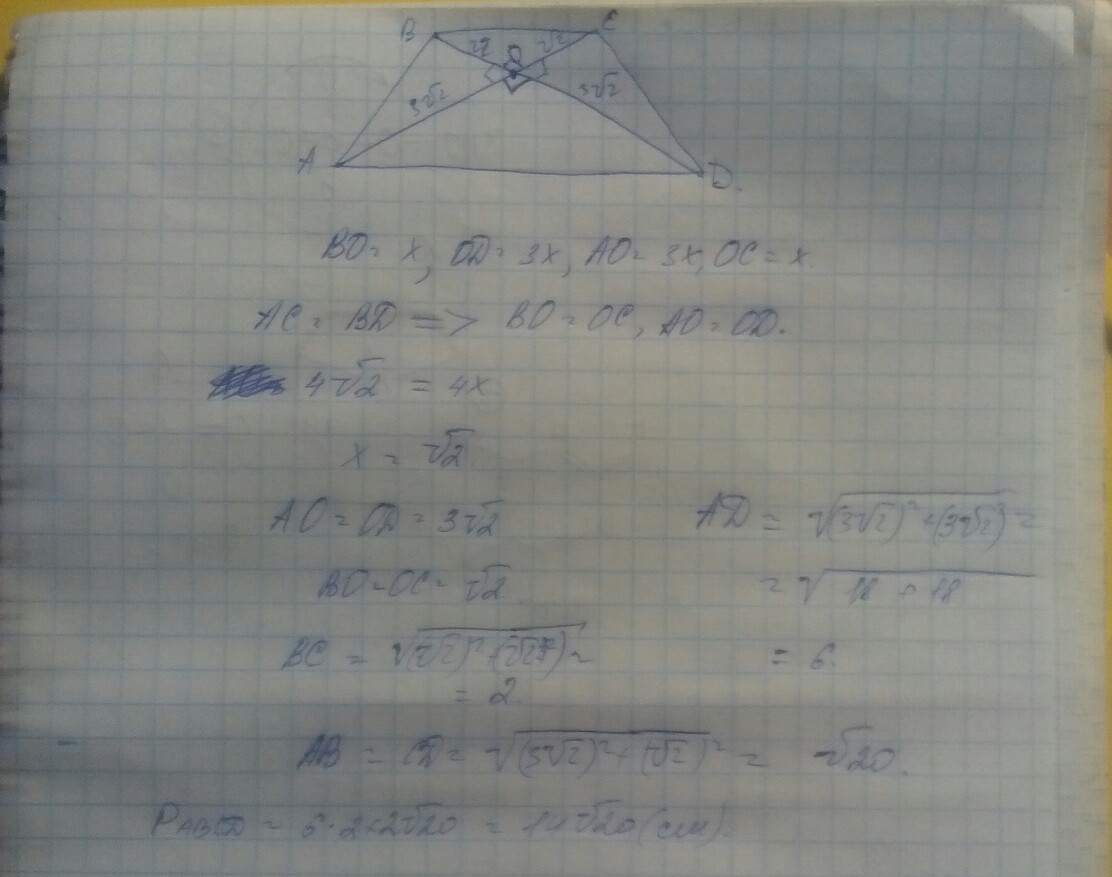 B C
O
√2 √2
3√2 3√2
A D.
BO = x, OD = 3x, AO = 3x, OC = x.
AC = BD => BO = OC, AO = OD.
4√2 = 4x
x = √2
AO = OD = 3√2
BO = OC = √2
BC = √(√2)² + (√2)² =
= 2.
AD = √(3√2)² + (3√2)² =
= √18 + 18
= 6.
AB = CD = √(3√2)² + (√2)² = √20.
P ABCD = 6 · 2 + 2√20 = 14√20 (см).